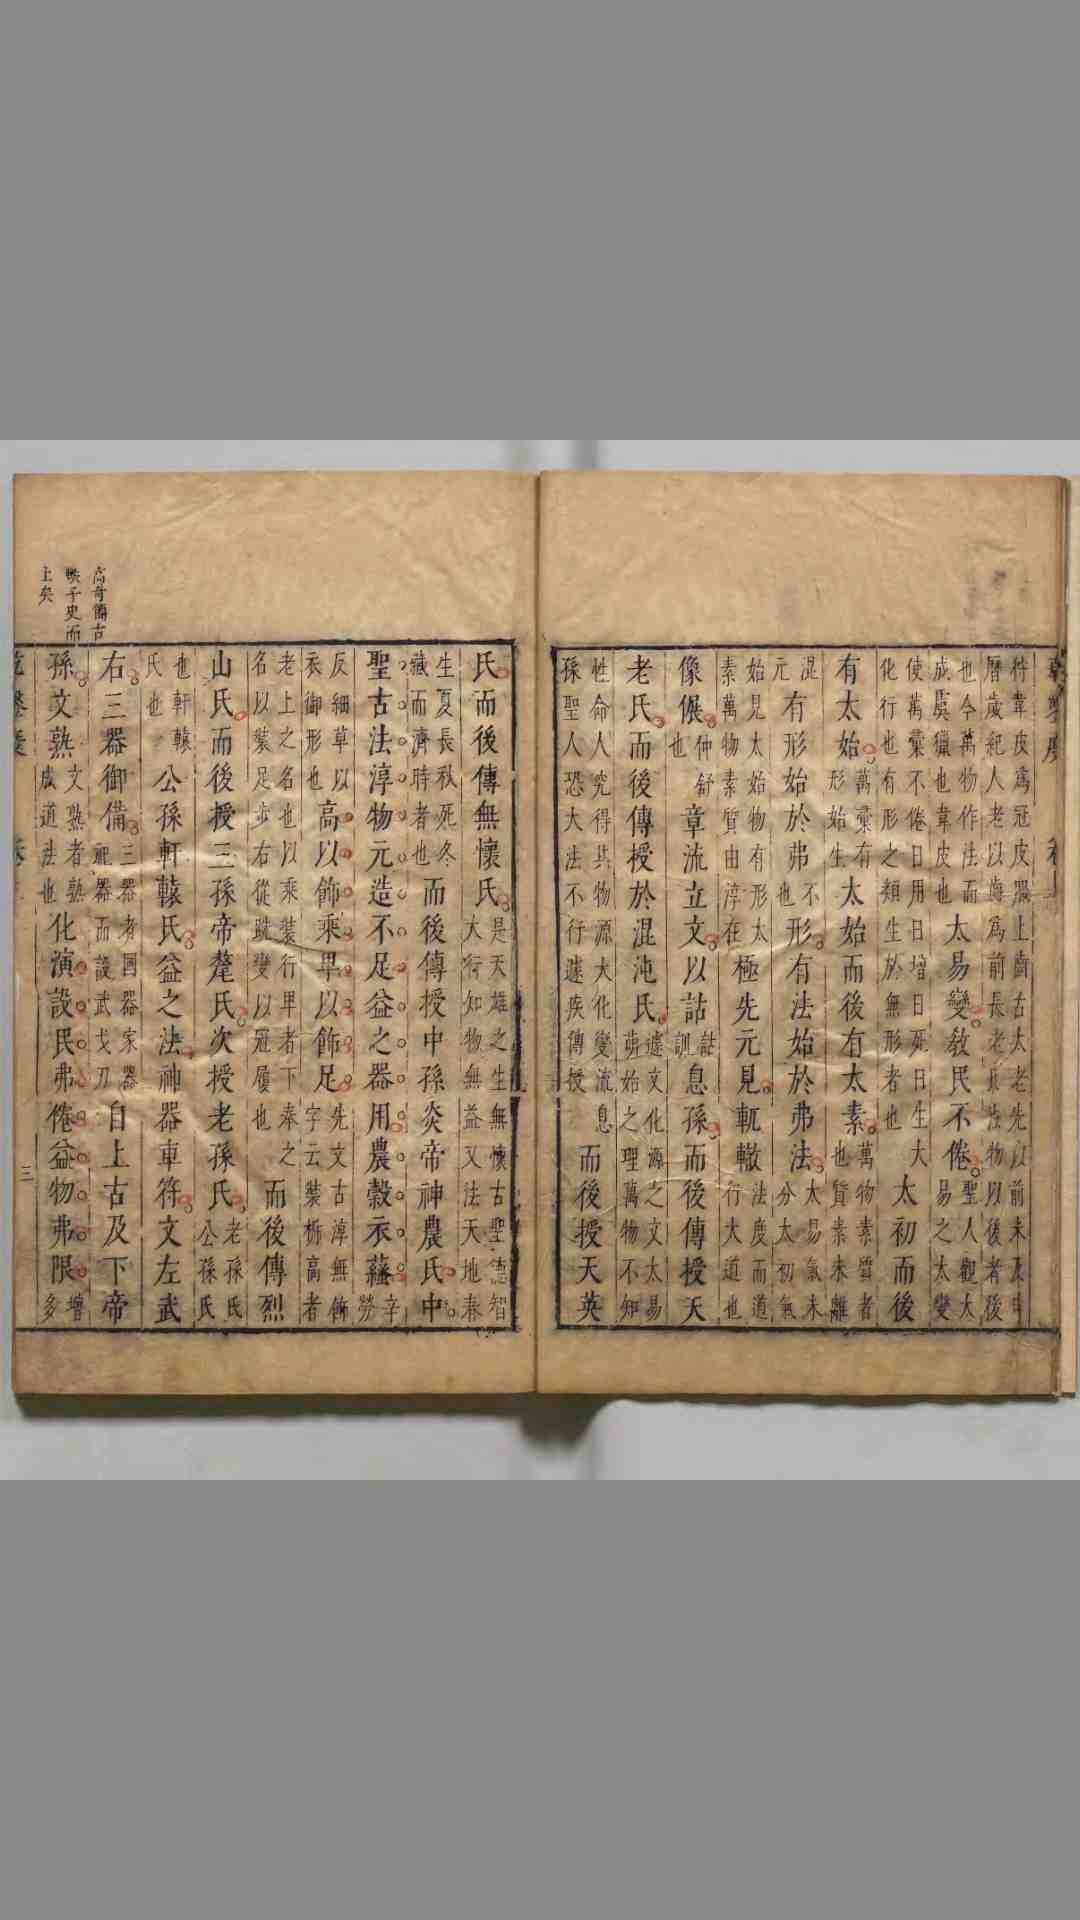 曆歲紀人老以齒為前長老民法物以後者後
也今萬物作法而
成虞獵也韋皮也
太易變教民不倦
聖人觀大
易之太變
使萬彙不倦日用日增日死日生大
化行也有形之類生於無形者也
太初而後
有太始
萬彙有
形始生
太始而後有太素
萬物素質者
也質素未離
混
元
有形始於弗
不
也
形有法始於弗法
太易氣未
分太初氣
始見太始物有形太
素萬物素質由淳在
極先元見軏轍
法度而道
行大道也
像倨
仲舒
也
章流立文以詁
詁
訓
息孫而後傳授天
老氏而後傳授於混沌氏
遽文化源之文太易
萌始之理萬物不知
性命人究得其物源大化變流息
孫聖人恐大法不行遽疾傳授
而後授天英
氏而後傳無懷氏
是天雄之生無懷古聖德智
大行知物無益又法天地春
生夏長秋死冬
藏而濟時者也
而後傳授中孫炎帝神農氏中
聖古法淳物元造不足益之器用農穀衣蘊
辛
勞
反細草以
衣御形也
高以飾乘卑以飾足
先文古淳無飾
字云裝栃高者
老上之名也以乘裝行卑者下奉之
名以裝足步右從跣變以冠履也
而後傳烈
山氏而後授三孫帝釐氏次授老孫氏
老孫氏
公孫氏
也軒轅
氏也
公孫軒轅氏益之法神器車符文左武
高奇簡古
軼子史而
上矣
右三器御備
三器者國器家器
祀器而設武戈刀
自上古及下帝
孫文熟
文熟者熟
成道法也
化演設民弗倦益物弗限
增
多
三